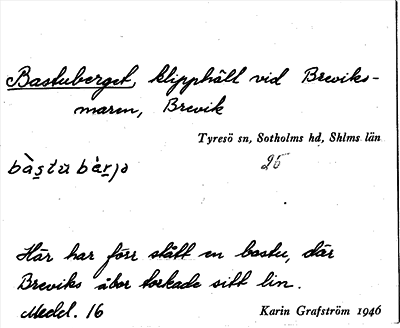 Bastuberget, klipphäll vid Breviks-
maren, Brevik
Tyresö sn, Sotholms hd, Shlms län
bàstu bærjə 25
Här har förr stått en bastu, där
Breviks åbor torkade sitt lin.
Medd. 16 Karin Grafström 1946